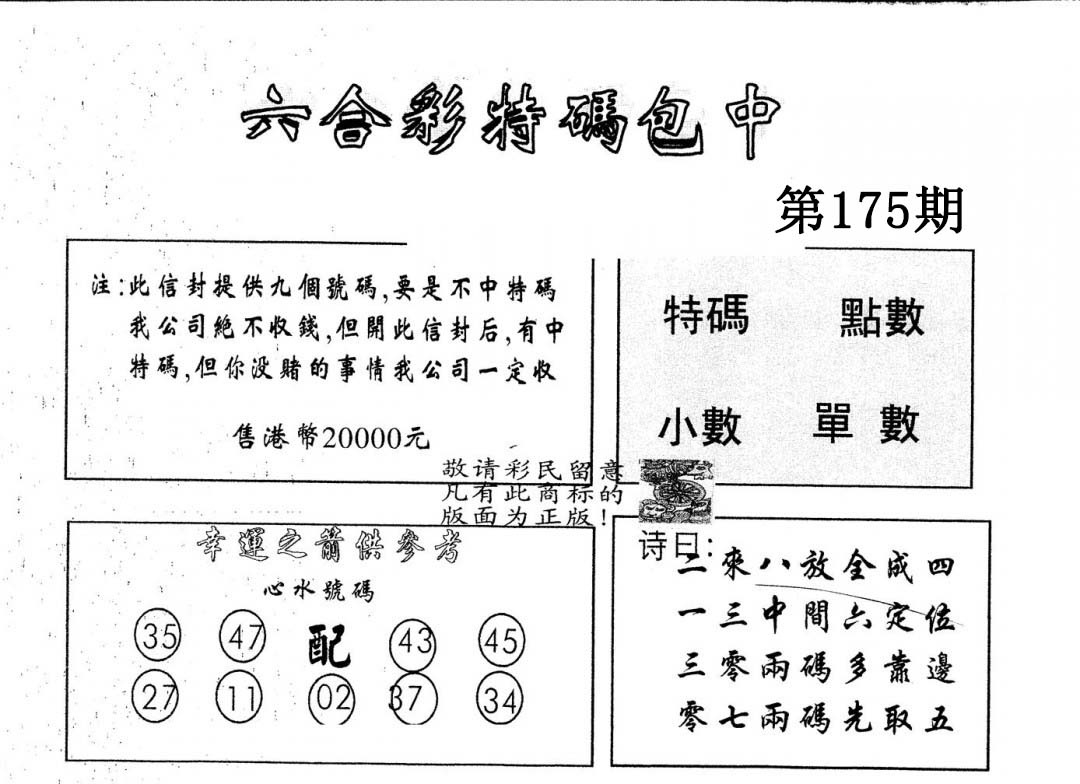 六合彩特碼包中
第175期
注:此信封提供九個號碼,要是不中特碼
我公司絕不收錢,但開此信封后,有中
特碼,但你没賭的事情我公司一定收
售港幣20000元
特碼 點數
小數 單數
敬请彩民留意
凡有此商标的
版面为正版!
幸運之箭供參考
心水號碼
35 47 配 43 45
27 11 02 37 34
诗曰:
二來八放全成四
一三中間六定位
三零兩碼多靠邊
零七兩碼先取五